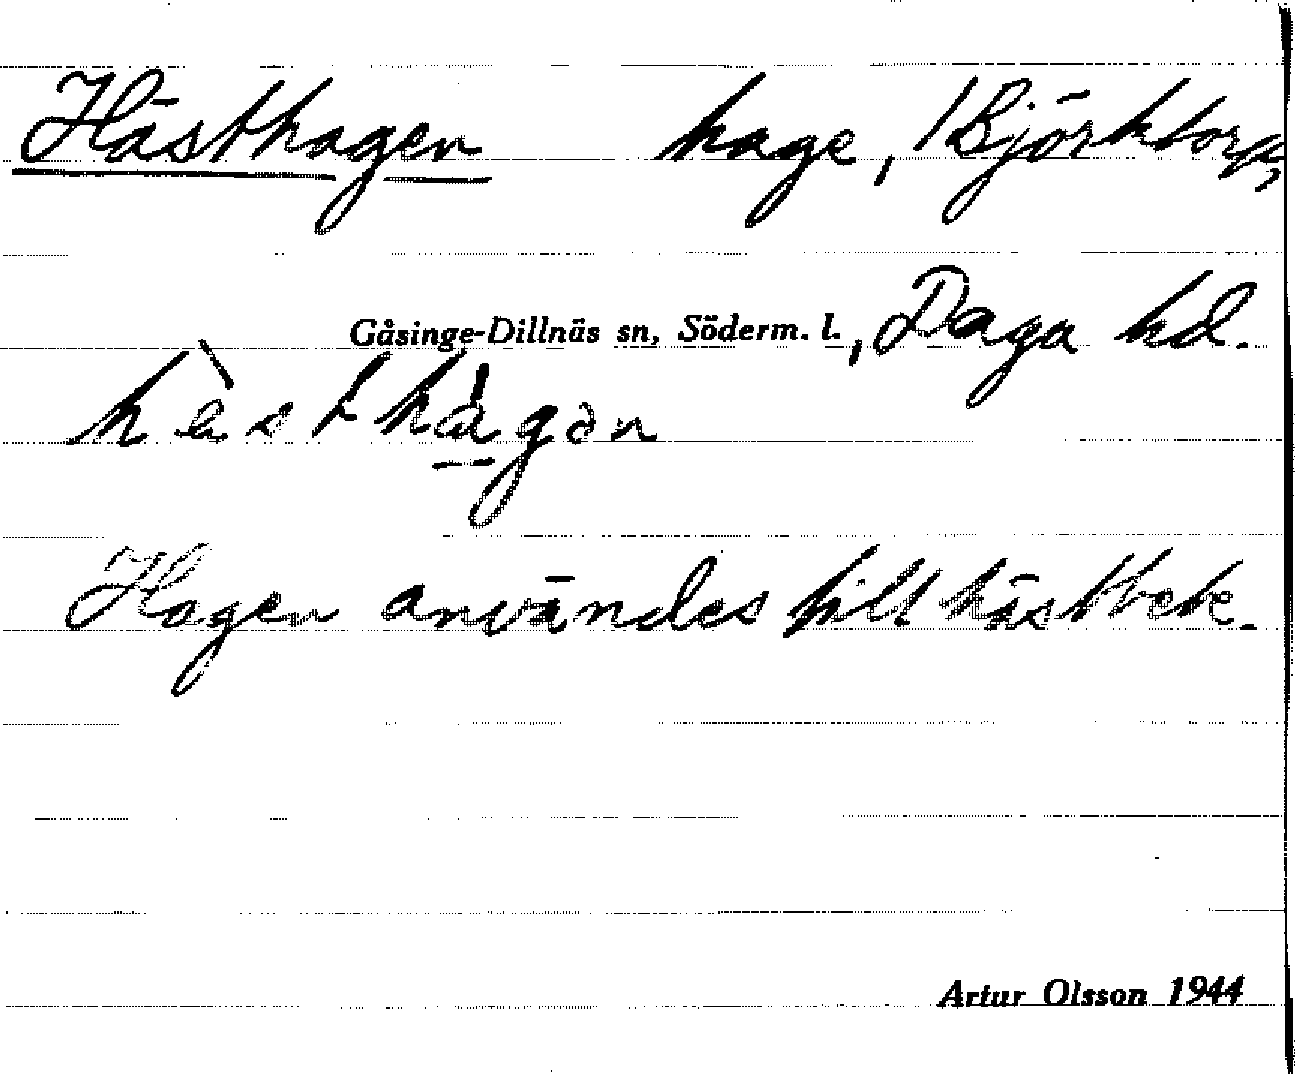 Hästhagen hage, Björktorp,
Gåsinge-Dillnäs sn, Söderm. l., Daga hd.
hὲsthàgən
Hagen användes till hästbete.
Artur Olsson 1944